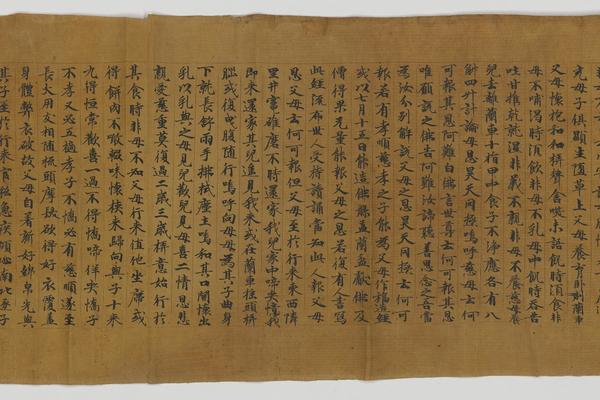 充母子俱顯生墮草上父母養育卧則蘭車
父母懷抱和和弄聲含咲未語飢時須食非
母不哺渴時須飲非母不乳母中飢時吞苦
吐甘推乾就濕非義不親非母不養慈母養
兒去離蘭車十指甲中食子不淨應各有八
斛四斗計論母恩昊天罔極嗚呼慈母云何
可報其恩阿難白佛言世尊云何可報其恩
唯願說之佛告阿難汝諦聽善思念之吾當
為汝分別解說父母之恩昊天罔極云何可
報若有孝順慈孝之子能為父母作福造經
或以七月十五日能造佛盤盂蘭盆獻佛及
僧得果无量能報父母之恩若復有人書寫
此經流布世人受持讀誦當知此人報父母
恩父母云何可報但父母至於行来東西隣
里井竈碓磨不時還家我兒家中啼哭憶我
即来還家其兒遙見我来或在蘭車摇頭弄
腦或復曳腹随行嗚呼向母母為其子曲身
下就長舒兩手拂拭塵土嗚和其口開懷出
乳以乳與之母見兒歡兒見母喜二情恩悲
親愛慈重莫復過二歲三歲弄意始行於
其食時非母不知父母行来值他坐席或
得餅肉不噉輟味懷挾来歸向與子十来
九得恒常歡喜一過不得憍啼佯哭憍子
不孝必有五擿孝子不憍必有慈順遂至
長大朋友相随梳頭摩髮欲得好衣覆蓋
身體弊衣破故父母自着新好綿帛先與
其子至於行来官私急疾傾心南北逐子